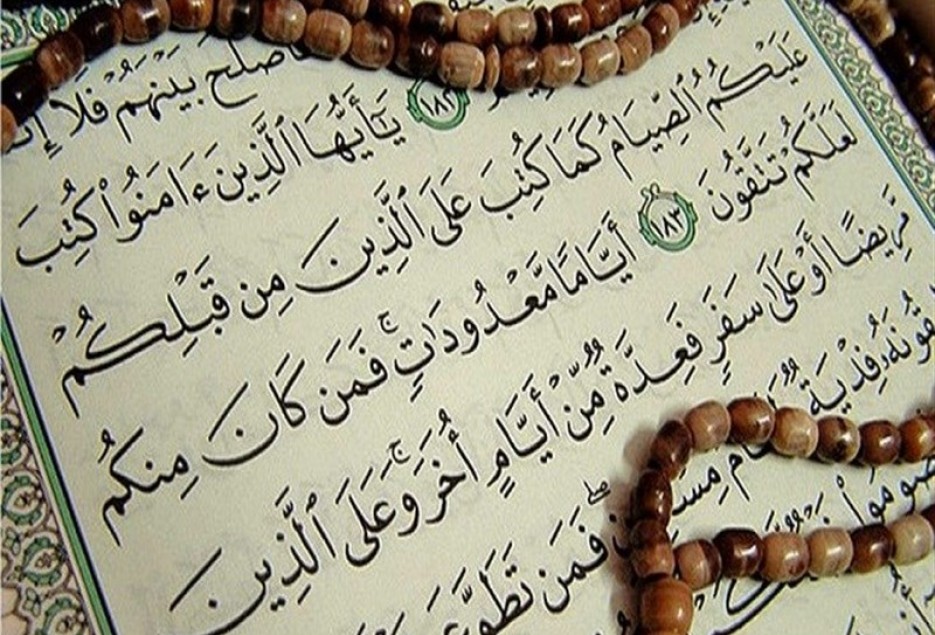 بَيْنَهُمْ فَلَا
١٨٢ يَٰٓأَيُّهَا ٱلَّذِينَ ءَامَنُوا۟ كُتِبَ
عَلَيْكُمُ ٱلصِّيَامُ كَمَا كُتِبَ عَلَى ٱلَّذِينَ مِن قَبْلِكُمْ
لَعَلَّكُمْ تَتَّقُونَ ١٨٣ أَيَّامًا مَّعْدُودَٰتٍ ۚ فَمَن كَانَ مِنكُم
مَّرِيضًا أَوْ عَلَىٰ سَفَرٍ فَعِدَّةٌ مِّنْ أَيَّامٍ أُخَرَ ۚ وَعَلَى ٱلَّذِينَ
فِدْيَةٌ فَمَن تَطَوَّعَ